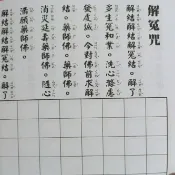 解冤咒
解結解結解冤結。解了
多生冤和業。洗心滌慮
發虔誠。今對佛前求解
結。藥師佛。藥師佛。
消災延壽藥師佛。隨心
滿願藥師佛。
解結解結解冤結。解了